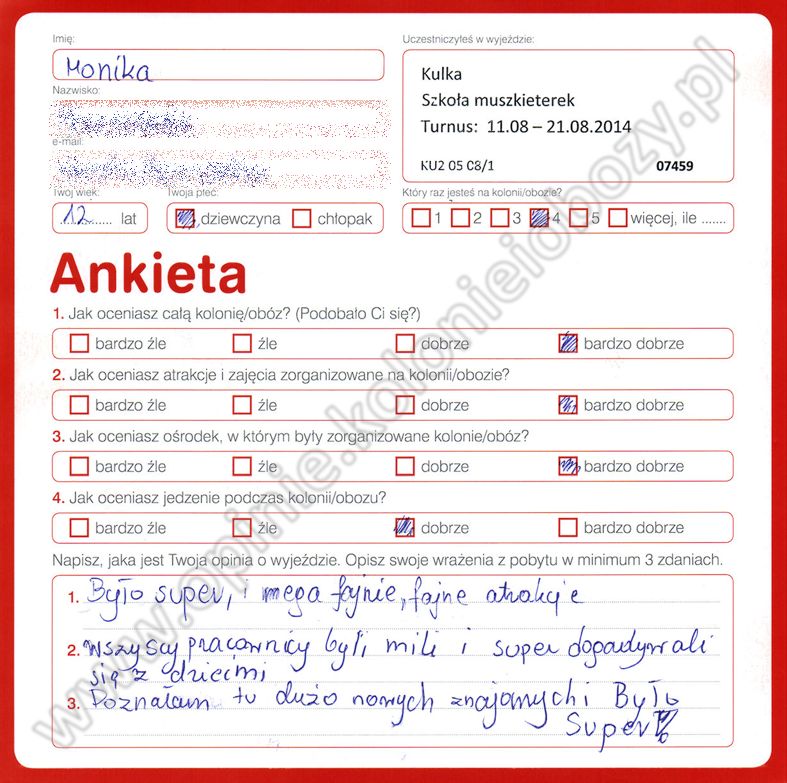 Imię:
Monika
Nazwisko:
e-mail:
Twój wiek:
12 lat
Twoja płeć:
dziewczyna chłopak
Uczestniczyłeś w wyjeździe:
Kulka
Szkoła muszkieterek
Turnus: 11.08 – 21.08.2014
KU2 05 C8/1 07459
Który raz jesteś na kolonii/obozie?
1 2 3 4 5 więcej, ile .......
Ankieta
1. Jak oceniasz całą kolonię/obóz? (Podobało Ci się?)
bardzo źle źle dobrze bardzo dobrze
2. Jak oceniasz atrakcje i zajęcia zorganizowane na kolonii/obozie?
bardzo źle źle dobrze bardzo dobrze
3. Jak oceniasz ośrodek, w którym były zorganizowane kolonie/obóz?
bardzo źle źle dobrze bardzo dobrze
4. Jak oceniasz jedzenie podczas kolonii/obozu?
bardzo źle źle dobrze bardzo dobrze
Napisz, jaka jest Twoja opinia o wyjeździe. Opisz swoje wrażenia z pobytu w minimum 3 zdaniach.
1. Było super, i mega fajnie, fajne atrakcje
2. Wszyscy pracownicy byli mili i super dogadywali
się z dziećmi
3. Poznałam tu dużo nowych znajomych i Było
Super
www.opinie.kolonieiobozy.pl